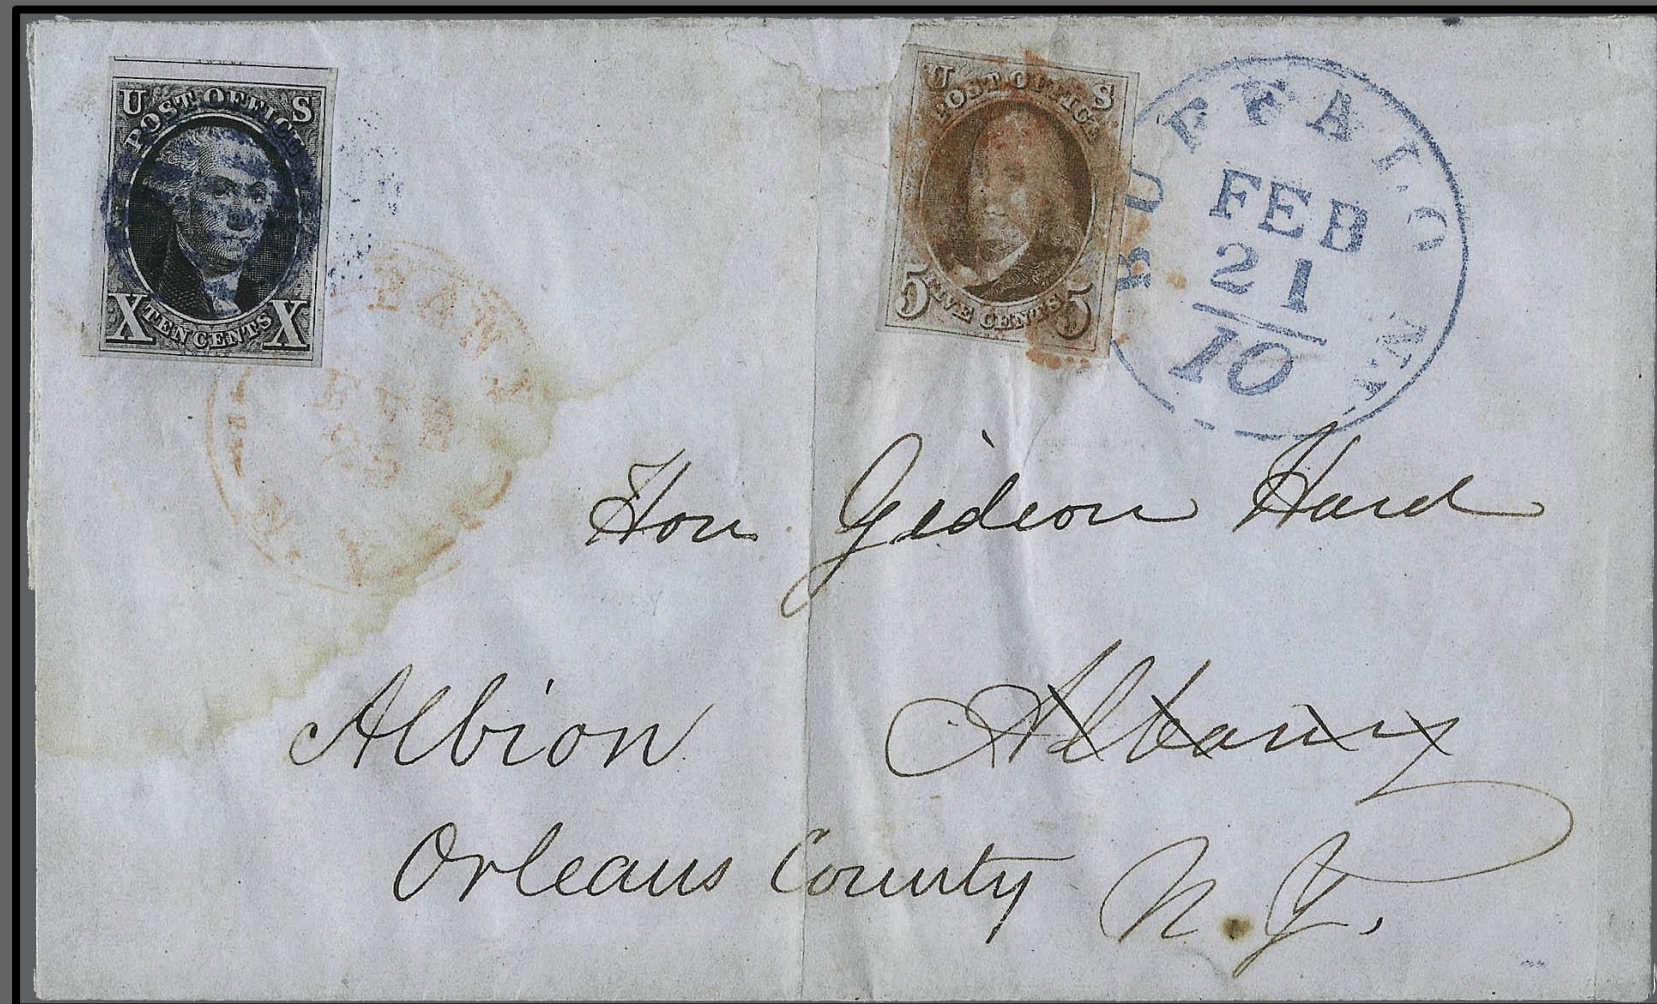 U S
POST OFFICE
X TEN CENTS X
U S
POST OFFICE
5 FIVE CENTS 5
BUFFALO N.Y.
FEB
21
10
FEB
ALBANY
N.Y.
Hon Gideon Hard
Albion Albany
Orleans County N.Y.